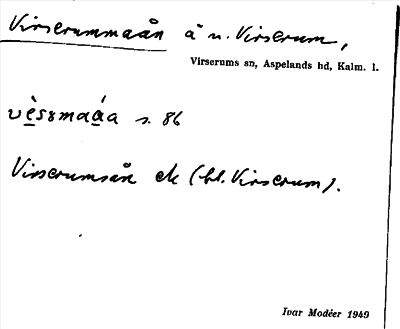 Virserummaån å n. Virserum,
Virserums sn, Aspelands hd, Kalm. l.
vè̱sɜmaá̱a s. 86
Virserumsån ek (bl. Virserum).
Ivar Modéer 1949